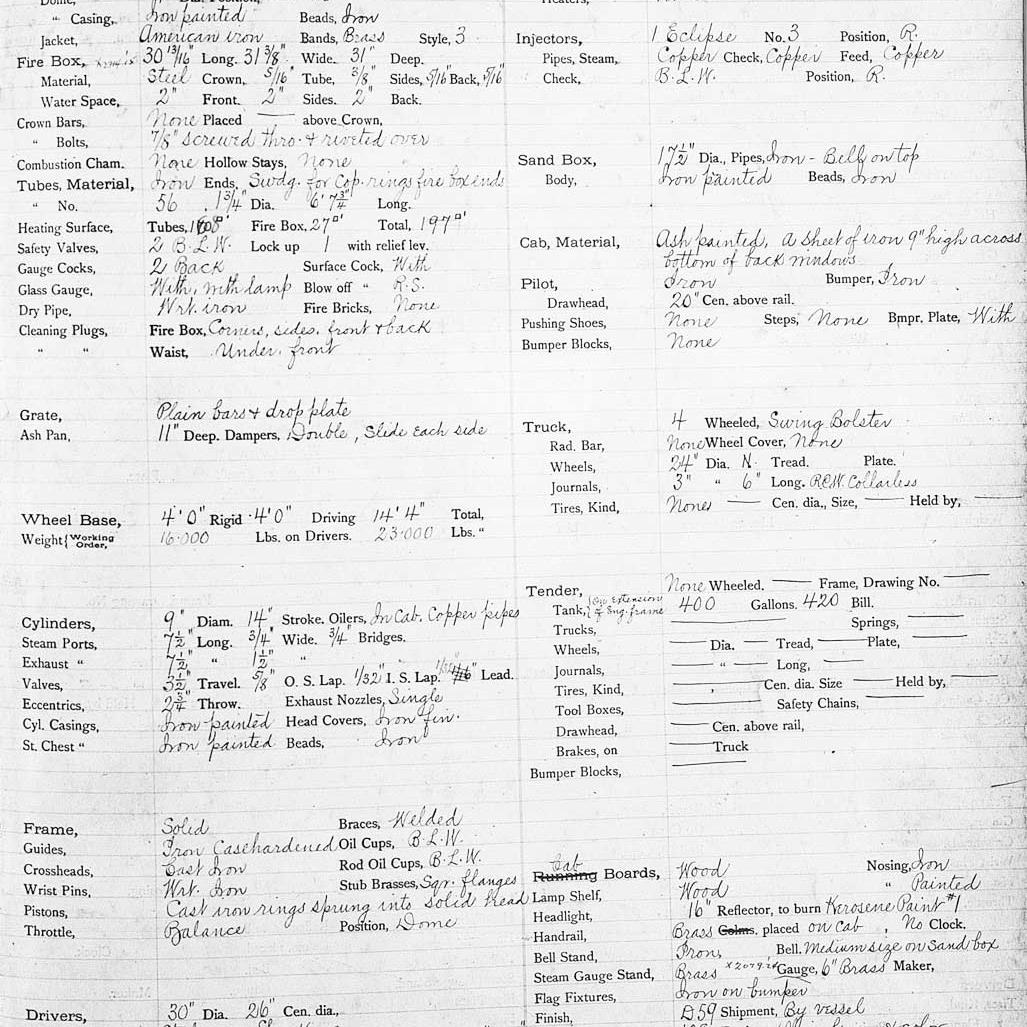 Dome,
" Casing, Iron painted Beads, Iron
Jacket, American iron Bands, Brass Style, 3
Fire Box, 30 13/16" Long. 31 3/8" Wide. 31" Deep.
Material, Steel Crown, 5/16" Tube, 3/8" Sides, 5/16" Back, 5/16"
Water Space, 2" Front. 2" Sides. 2" Back.
Crown Bars, None Placed — above Crown,
" Bolts, 7/8" screwed thro. & riveted over
Combustion Cham. None Hollow Stays, None
Tubes, Material, Iron Ends, Swdg. for Cop. rings fire box ends
" No. 56 . 1 3/4" Dia. 6' 7 3/4" Long.
Heating Surface, Tubes, Fire Box, 27□' Total, 197□'
Safety Valves, 2 B.L.W. Lock up 1 with relief lev.
Gauge Cocks, 2 Back Surface Cock, With
Glass Gauge, With, with lamp Blow off " R.S.
Dry Pipe, Wrt. iron Fire Bricks, None
Cleaning Plugs, Fire Box, Corners, sides, front & back
" " Waist, Under. front
Grate, Plain bars & drop plate
Ash Pan, 11" Deep. Dampers, Double, Slide each side
Wheel Base, 4' 0" Rigid 4' 0" Driving 14' 4" Total,
Weight { Working Order, 16.000 Lbs. on Drivers. 23.000 Lbs. "
Cylinders, 9" Diam. 14" Stroke. Oilers, In Cab. Copper pipes
Steam Ports, 7 1/2" Long. 3/4" Wide. 3/4" Bridges.
Exhaust " 7 1/2" " 1 1/2" "
Valves, 3 1/2" Travel. 5/8" O. S. Lap. 1/32" I. S. Lap. Lead.
Eccentrics, 2 3/4" Throw. Exhaust Nozzles, Single
Cyl. Casings, Iron painted Head Covers, Iron fin.
St. Chest " Iron painted Beads, Iron
Frame, Solid Braces, Welded
Guides, Iron Casehardened Oil Cups, B.L.W.
Crossheads, Cast Iron Rod Oil Cups, B.L.W.
Wrist Pins, Wrt. Iron Stub Brasses, Sqr. flanges
Pistons, Cast iron rings sprung into solid head
Throttle, Balance Position, Dome
Drivers, 30" Dia. 26" Cen. dia.,
Heaters,
Injectors, 1 Eclipse No. 3 Position, R.
Pipes, Steam, Copper Check, Copper Feed, Copper
Check, B.L.W. Position, R.
Sand Box, 17 1/2" Dia., Pipes, Iron - Bell on top
Body, Iron painted Beads, Iron
Cab, Material, Ash painted, a sheet of iron 9" high across
bottom of back windows
Pilot, Iron Bumper, Iron
Drawhead, 20" Cen. above rail.
Pushing Shoes, None Steps, None Bmpr. Plate, With
Bumper Blocks, None
Truck, 4 Wheeled, Swing Bolster
Rad. Bar, None Wheel Cover, None
Wheels, 24" Dia. N. Tread. Plate.
Journals, 3" " 6" Long. Collarless
Tires, Kind, None — Cen. dia., Size, — Held by, —
Tender, None Wheeled. — Frame, Drawing No. —
Tank, { On Extension of Eng. frame 400 Gallons. 420 Bill.
Trucks, — Springs, —
Wheels, — Dia. — Tread, — Plate, —
Journals, — " — Long, —
Tires, Kind, — Cen. dia. Size — Held by, —
Tool Boxes, — Safety Chains, —
Drawhead, — Cen. above rail,
Brakes, on — Truck
Bumper Blocks, —
Cab
Running Boards, Wood Nosing, Iron
Lamp Shelf, Wood " Painted
Headlight, 16" Reflector, to burn Kerosene Paint #1
Handrail, Brass Colms. placed on cab, No Clock.
Bell Stand, Iron, Bell. Medium size on Sand box
Steam Gauge Stand, Brass Gauge, 6" Brass Maker,
Flag Fixtures, Iron on bumper
Finish, D59 Shipment, By vessel